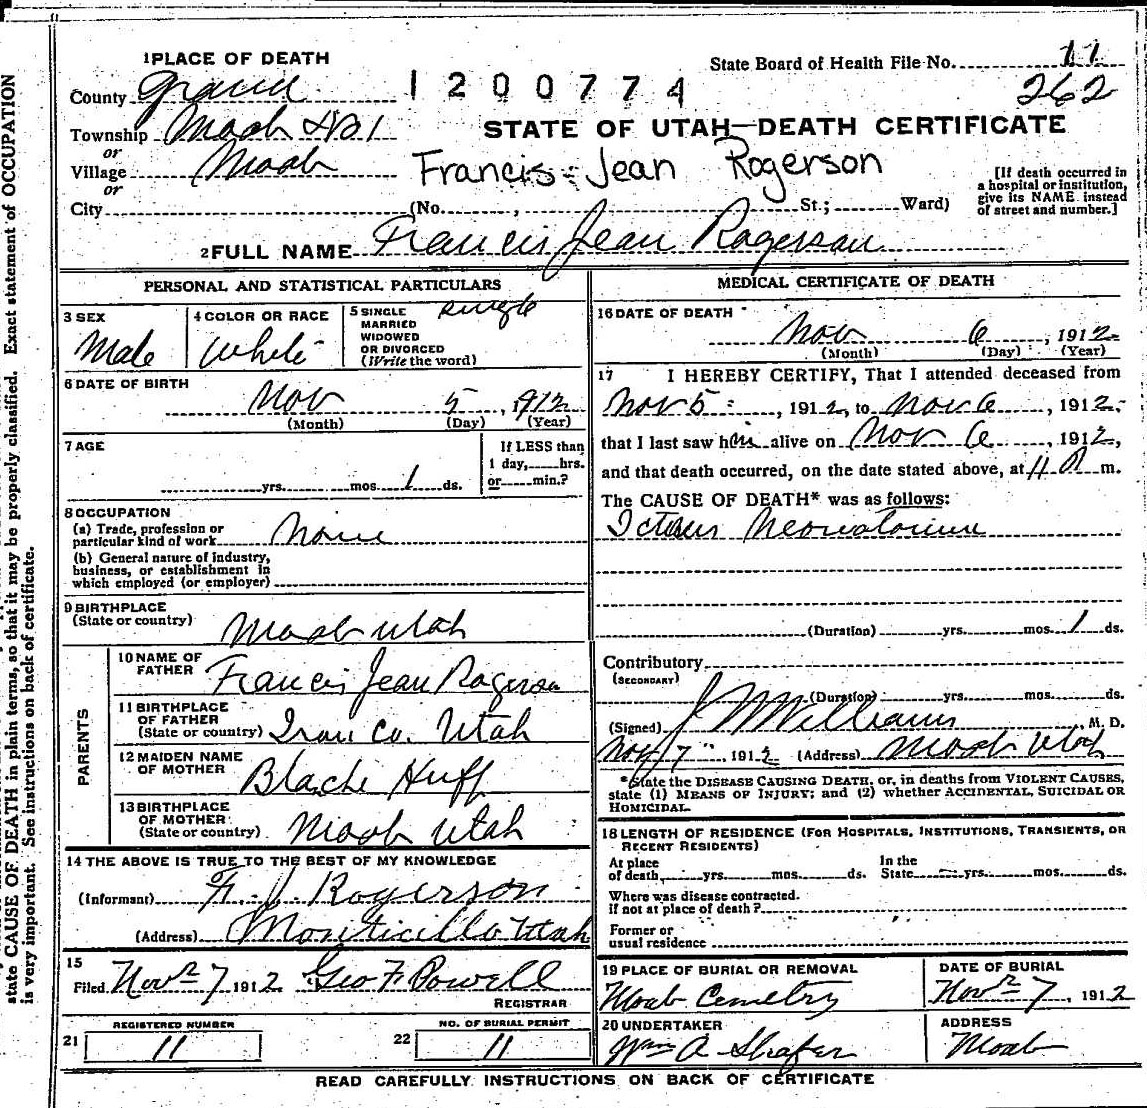 state CAUSE OF DEATH in plain terms, so that it may be properly classified. Exact statement of OCCUPATION
is very important. See instructions on back of certificate.
1 PLACE OF DEATH
State Board of Health File No. 11
County Grand
1200774
262
Township Moab
STATE OF UTAH—DEATH CERTIFICATE
or
Village Moab
Francis Jean Rogerson
or
City (No. , St.; Ward)
[If death occurred in
a hospital or institution,
give its NAME instead
of street and number.]
2 FULL NAME Francis Jean Rogerson
PERSONAL AND STATISTICAL PARTICULARS
3 SEX
Male
4 COLOR OR RACE
White
5 SINGLE
MARRIED
WIDOWED
OR DIVORCED
(Write the word)
single
6 DATE OF BIRTH
Nov 5, 1912
(Month) (Day) (Year)
7 AGE
yrs. mos. 1 ds.
If LESS than
1 day, hrs.
or min.?
8 OCCUPATION
(a) Trade, profession or
particular kind of work None
(b) General nature of industry,
business, or establishment in
which employed (or employer)
9 BIRTHPLACE
(State or country)
Moab Utah
PARENTS
10 NAME OF
FATHER
Francis Jean Rogerson
11 BIRTHPLACE
OF FATHER
(State or country) Iron Co. Utah
12 MAIDEN NAME
OF MOTHER
Blache Huff
13 BIRTHPLACE
OF MOTHER
(State or country) Moab Utah
14 THE ABOVE IS TRUE TO THE BEST OF MY KNOWLEDGE
(Informant) F. J. Rogerson
(Address) Monticello Utah
15
Filed Nov 7 1912 Geo F. Powell
REGISTRAR
21 REGISTERED NUMBER
11
22 NO. OF BURIAL PERMIT
11
MEDICAL CERTIFICATE OF DEATH
16 DATE OF DEATH
Nov 6, 1912
(Month) (Day) (Year)
17 I HEREBY CERTIFY, That I attended deceased from
Nov 5, 1912, to Nov 6, 1912,
that I last saw him alive on Nov 6, 1912,
and that death occurred, on the date stated above, at 11 m.
The CAUSE OF DEATH* was as follows:
Icterus Neonatorum
(Duration) yrs. mos. 1 ds.
Contributory
(SECONDARY)
(Duration) yrs. mos. ds.
(Signed) J W Williams, M. D.
Nov 7 1912 (Address) Moab Utah
*State the DISEASE CAUSING DEATH, or, in deaths from VIOLENT CAUSES,
state (1) MEANS OF INJURY; and (2) whether ACCIDENTAL, SUICIDAL OR
HOMICIDAL.
18 LENGTH OF RESIDENCE (FOR HOSPITALS, INSTITUTIONS, TRANSIENTS, OR
RECENT RESIDENTS)
At place
of death, yrs. mos. ds.
In the
State yrs. mos. ds.
Where was disease contracted.
if not at place of death?
Former or
usual residence
19 PLACE OF BURIAL OR REMOVAL
Moab Cemetry
DATE OF BURIAL
Nov 7, 1912
20 UNDERTAKER
Wm A Shafer
ADDRESS
Moab
READ CAREFULLY INSTRUCTIONS ON BACK OF CERTIFICATE